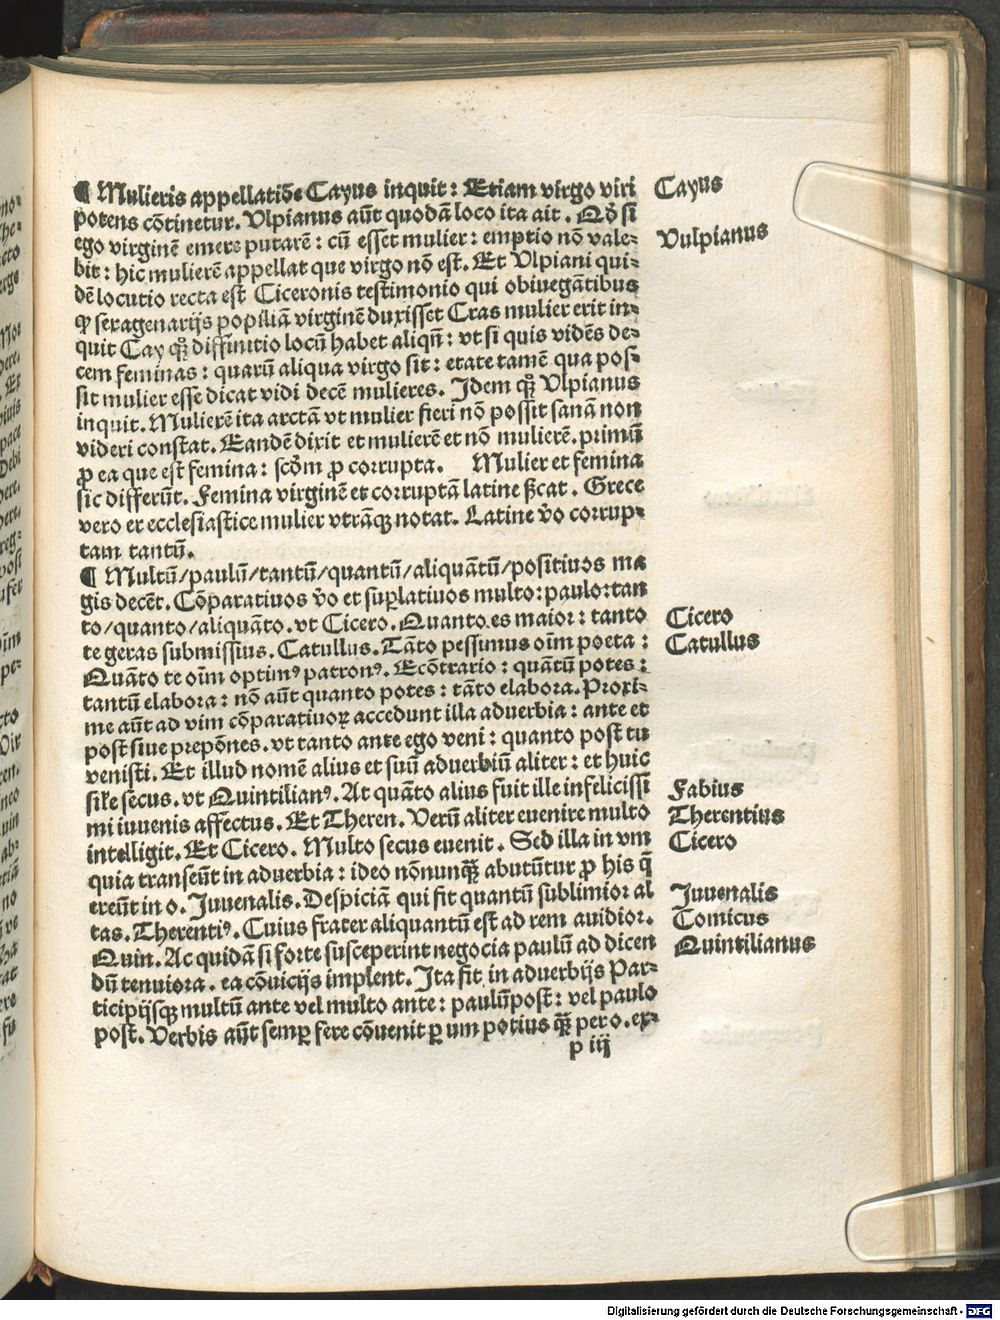 ¶ Mulieris appellatiõe Cayus inquit: Etiam virgo viri
potens cõtinetur. Vlpianus aũt quodã loco ita ait. Qđ si
ego virginẽ emere putarẽ: cũ esset mulier: emptio nõ vale-
bit: hic mulierẽ appellat que virgo nõ est. Et Vlpiani qui-
dẽ locutio recta est Ciceronis testimonio qui obiuegãtibus
ꝙ sexagenarijs popiliã virginẽ duxisset Cras mulier erit in-
quit Cay qꝫ̃ diffinitio locũ habet aliqñ: vt si quis vidẽs de-
cem feminas: quarũ aliqua virgo sit: etate tamẽ qua pos-
sit mulier esse dicat vidi decẽ mulieres. Idem qꝫ̃ Vlpianus
inquit. Mulierẽ ita arctã vt mulier fieri nõ possit sanã non
videri constat. Eandẽ dixit et mulierẽ et nõ mulierẽ. primũ
ꝓ ea que est femina: scđm ꝓ corrupta. Mulier et femina
sic differũt. Femina virginẽ et corruptã latine ẜcat. Grece
vero er ecclesiastice mulier vtrãqꝫ notat. Latine v̉o corrup-
tam tantũ.
¶ Multũ/paulũ/tantũ/quantũ/aliquãtũ/positiuos ma
gis decẽt. Cõparatiuos v̉o et suꝑlatiuos multo: paulo: tan
to/quanto/aliquãto. vt Cicero. Quanto es maior: tanto
te geras submissius. Catullus. Tãto pessimus oĩm poeta:
Quãto te oĩm optimꝰ patronꝰ. Ecõtrario: quãtũ potes:
tantũ elabora: nõ aũt quanto potes: tãto elabora. Proxi-
me aũt ad vim cõparatiuoꝝ accedunt illa aduerbia: ante et
post siue prepõnes. vt tanto ante ego veni: quanto post tu
venisti. Et illud nomẽ alius et suũ aduerbiũ aliter: et huic
sil̃e secus. vt Quintilianꝰ. At quãto alius fuit ille infelicissi
mi iuuenis affectus. Et Theren. Verũ aliter euenire multo
intelligit. Et Cicero. Multo secus euenit. Sed illa in vm
quia transeũt in aduerbia: ideo nõnunqꝫ̃ abutũtur ꝓ his q̃
exeũt in o. Juuenalis. Despiciã qui fit quantũ sublimior al
tas. Therentiꝰ. Cuius frater aliquantũ est ad rem auidior.
Quin. Ac quidã si forte susceperint negocia paulũ ad dicen
dũ tenuiora. ea cõuicijs implent. Ita fit in aduerbijs Par-
ticipijsqꝫ multũ ante vel multo ante: paulũpost: vel paulo
post. Verbis aũt semꝑ fere cõuenit ꝑ um potius qꝫ̃ per o. ex-
p iij
Cayus
Vulpianus
Cicero
Catullus
Fabius
Therentius
Cicero
Juuenalis
Comicus
Quintilianus
Digitalisierung gefördert durch die Deutsche Forschungsgemeinschaft - DFG